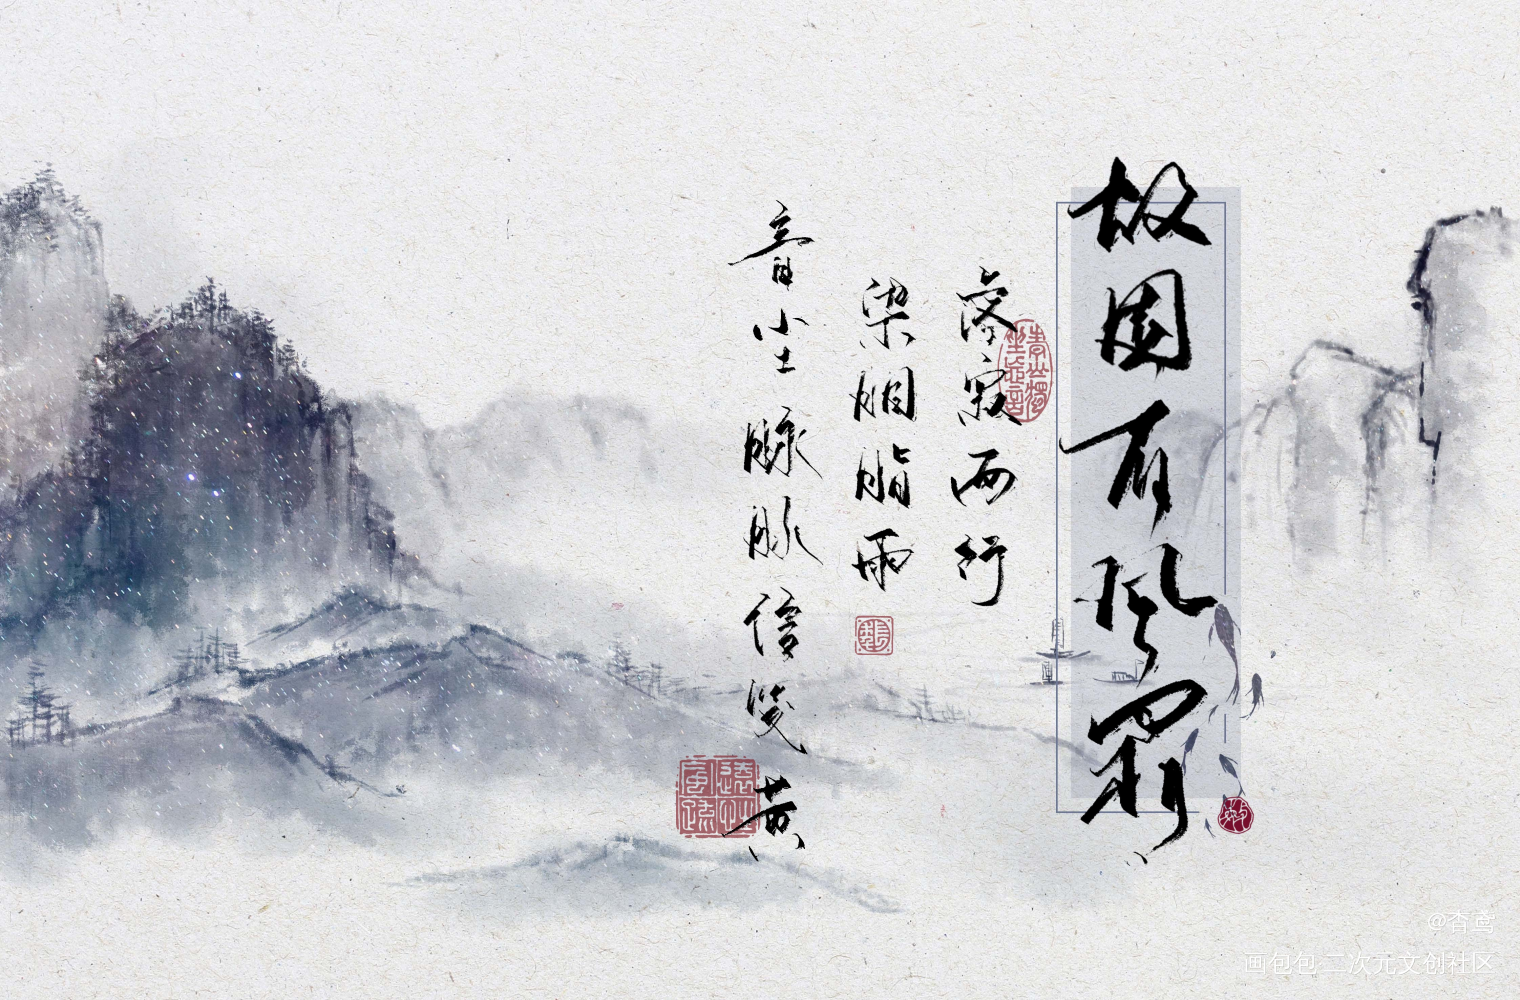 故园有风霜
寂寞两行
染胭脂雨
音尘脉脉信笺黄
@杳鸢
画包包·二次元文创社区